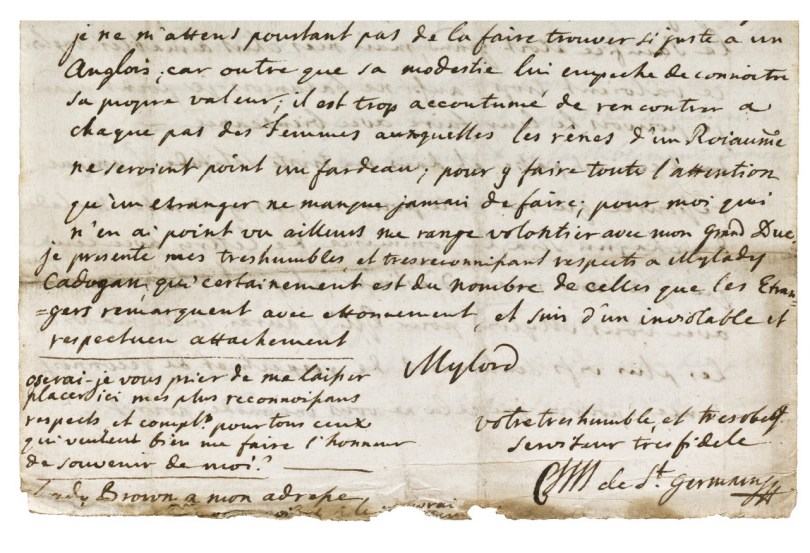 je ne m'attens pourtant pas de la faire trouver si juste a un
Anglois; car outre que sa modestie lui empeche de connoitre
sa propre valeur; il est trop accoutumé de rencontrer a
chaque pas des femmes auxquelles les rênes d'un Roiaume
ne seroient point un fardeau; pour y faire toute l'attention
qu'un etranger ne manque jamais de faire; pour moi qui
n'en ai point vu ailleurs me range volontier avec mon Grand Duc.
je presente mes treshumbles, et tresreconnissant respects a Mylady
Cadogan, qui certainement est du nombre de celles que les Etran=
=gers remarquent avec ettonnement, et suis d'un inviolable et
respectueu attachement
Mylord
oserai-je vous prier de me laisser
placer ici mes plus reconnoissans
respects et complts. pour tous ceux
qui veulent bien me faire l'honneur
de souvenir de moi?
votre treshumble, et tresobt.
serviteur tres fidele
de St. Germain
Lady Brown a mon adresse